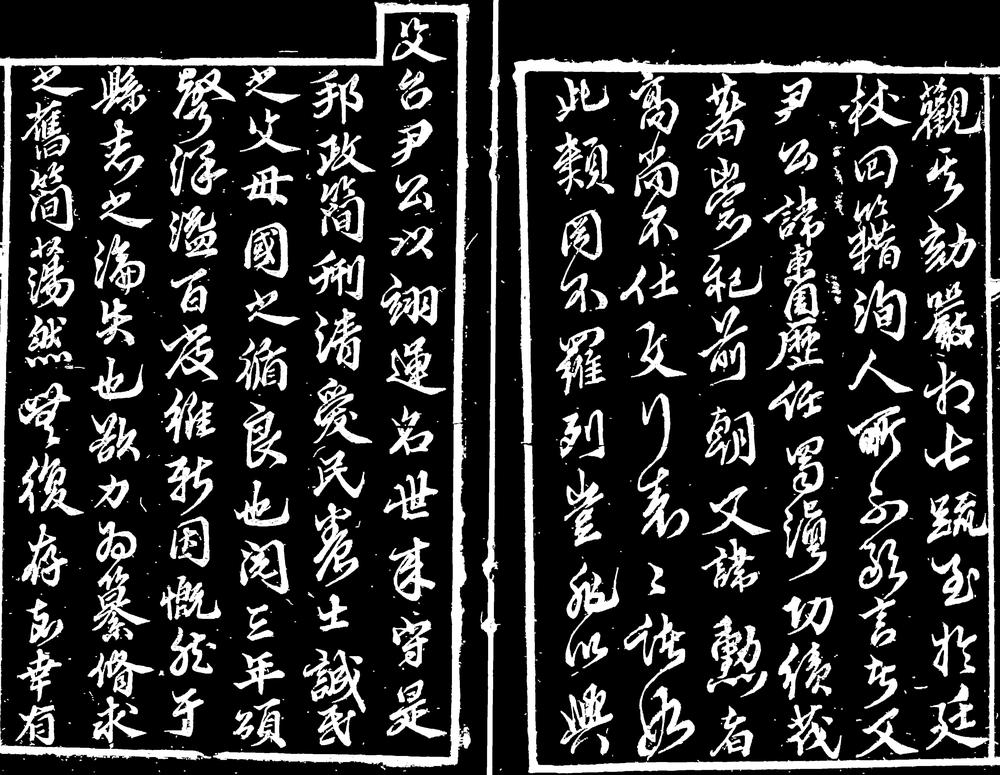 觀其劾嚴相七疏至於廷
杖回籍洵人所不敢言者又
尹公諱東周歷任蜀滇功績茂
著崇祀前朝又諱勳者
高尚不仕文行表〻諸如
此類罔不羅列豈非以興
父台尹公以翊運名世來守是
邦政簡刑清愛民養士誠民
之父母國之循良也閱三年頌
聲洋溢百廢維新因慨然于
縣志之淪失也欲力為纂脩求
之舊簡蕩然無復存矣幸有